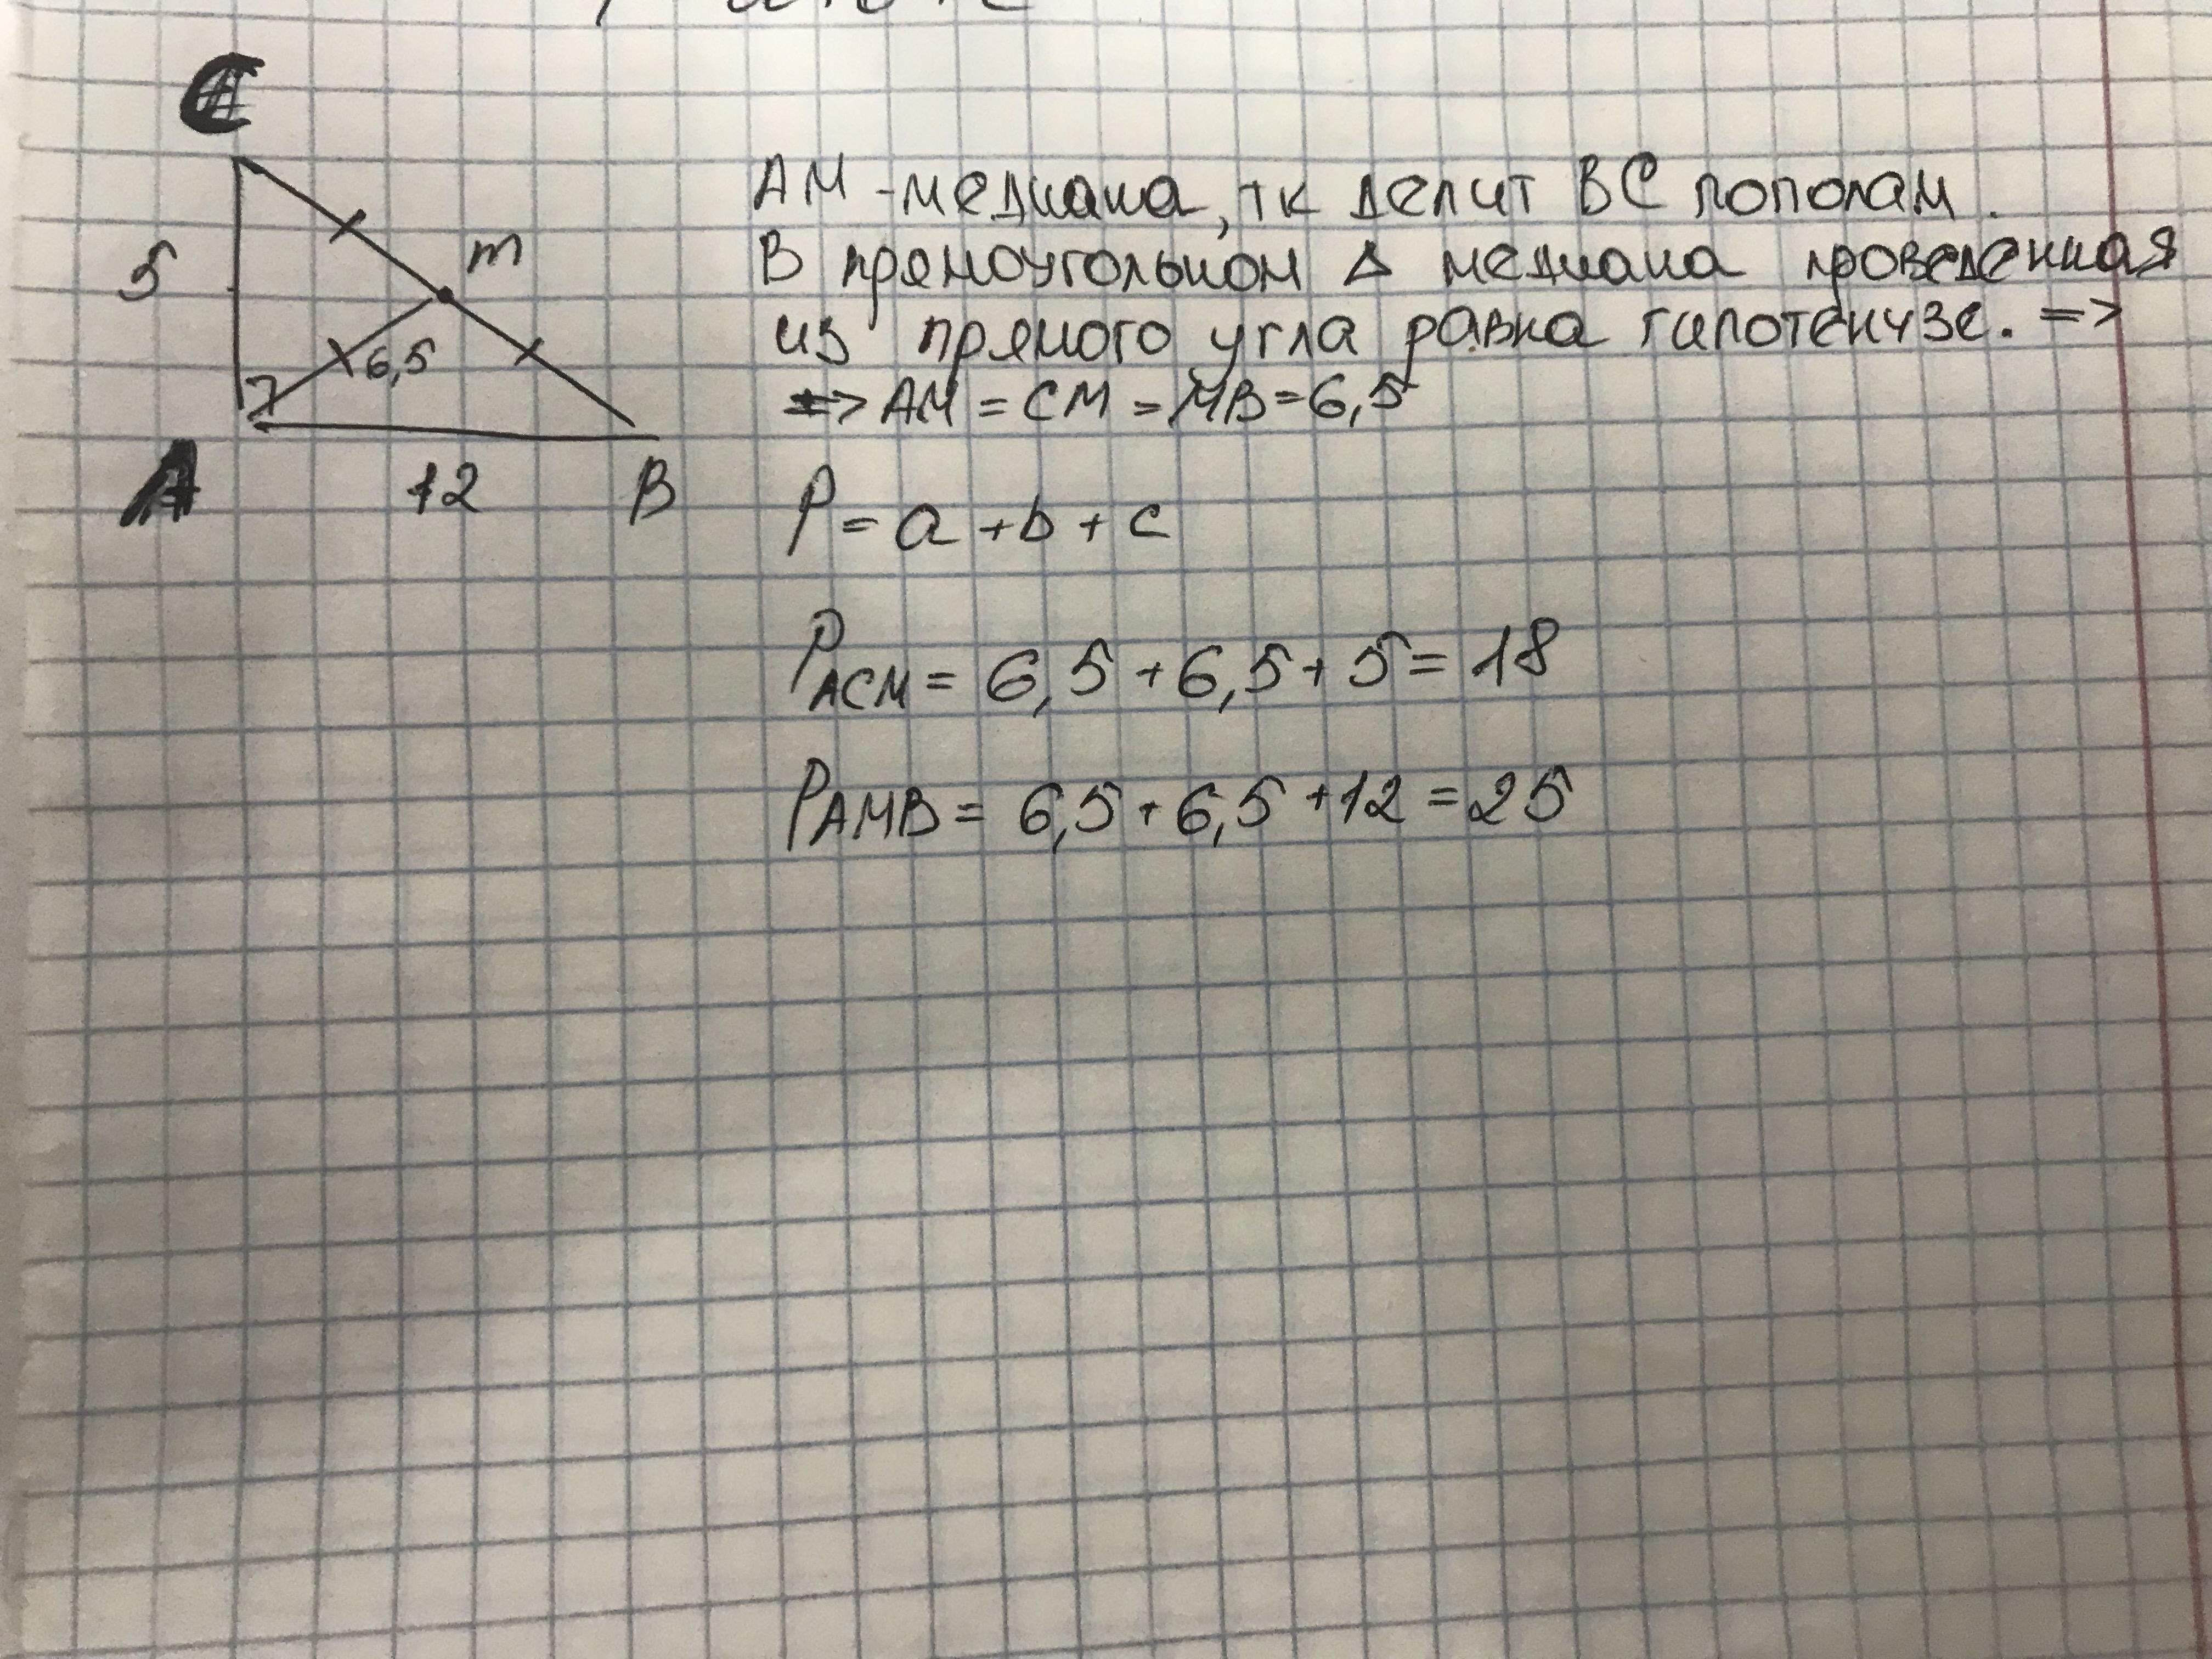 C
5
m
6,5
A
12
B
AM - медиана, тк делит BC пополам.
В прямоугольном Δ медиана проведенная
из прямого угла равна гипотенузе. =>
=> AM = CM = MB = 6,5
P = a + b + c
P ACM = 6,5 + 6,5 + 5 = 18
P AMB = 6,5 + 6,5 + 12 = 25